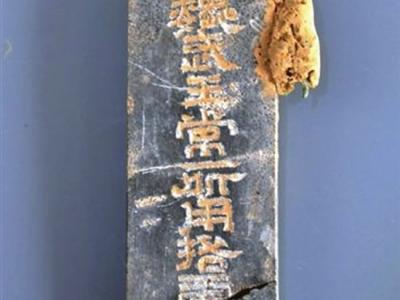 魏武王常所用挌